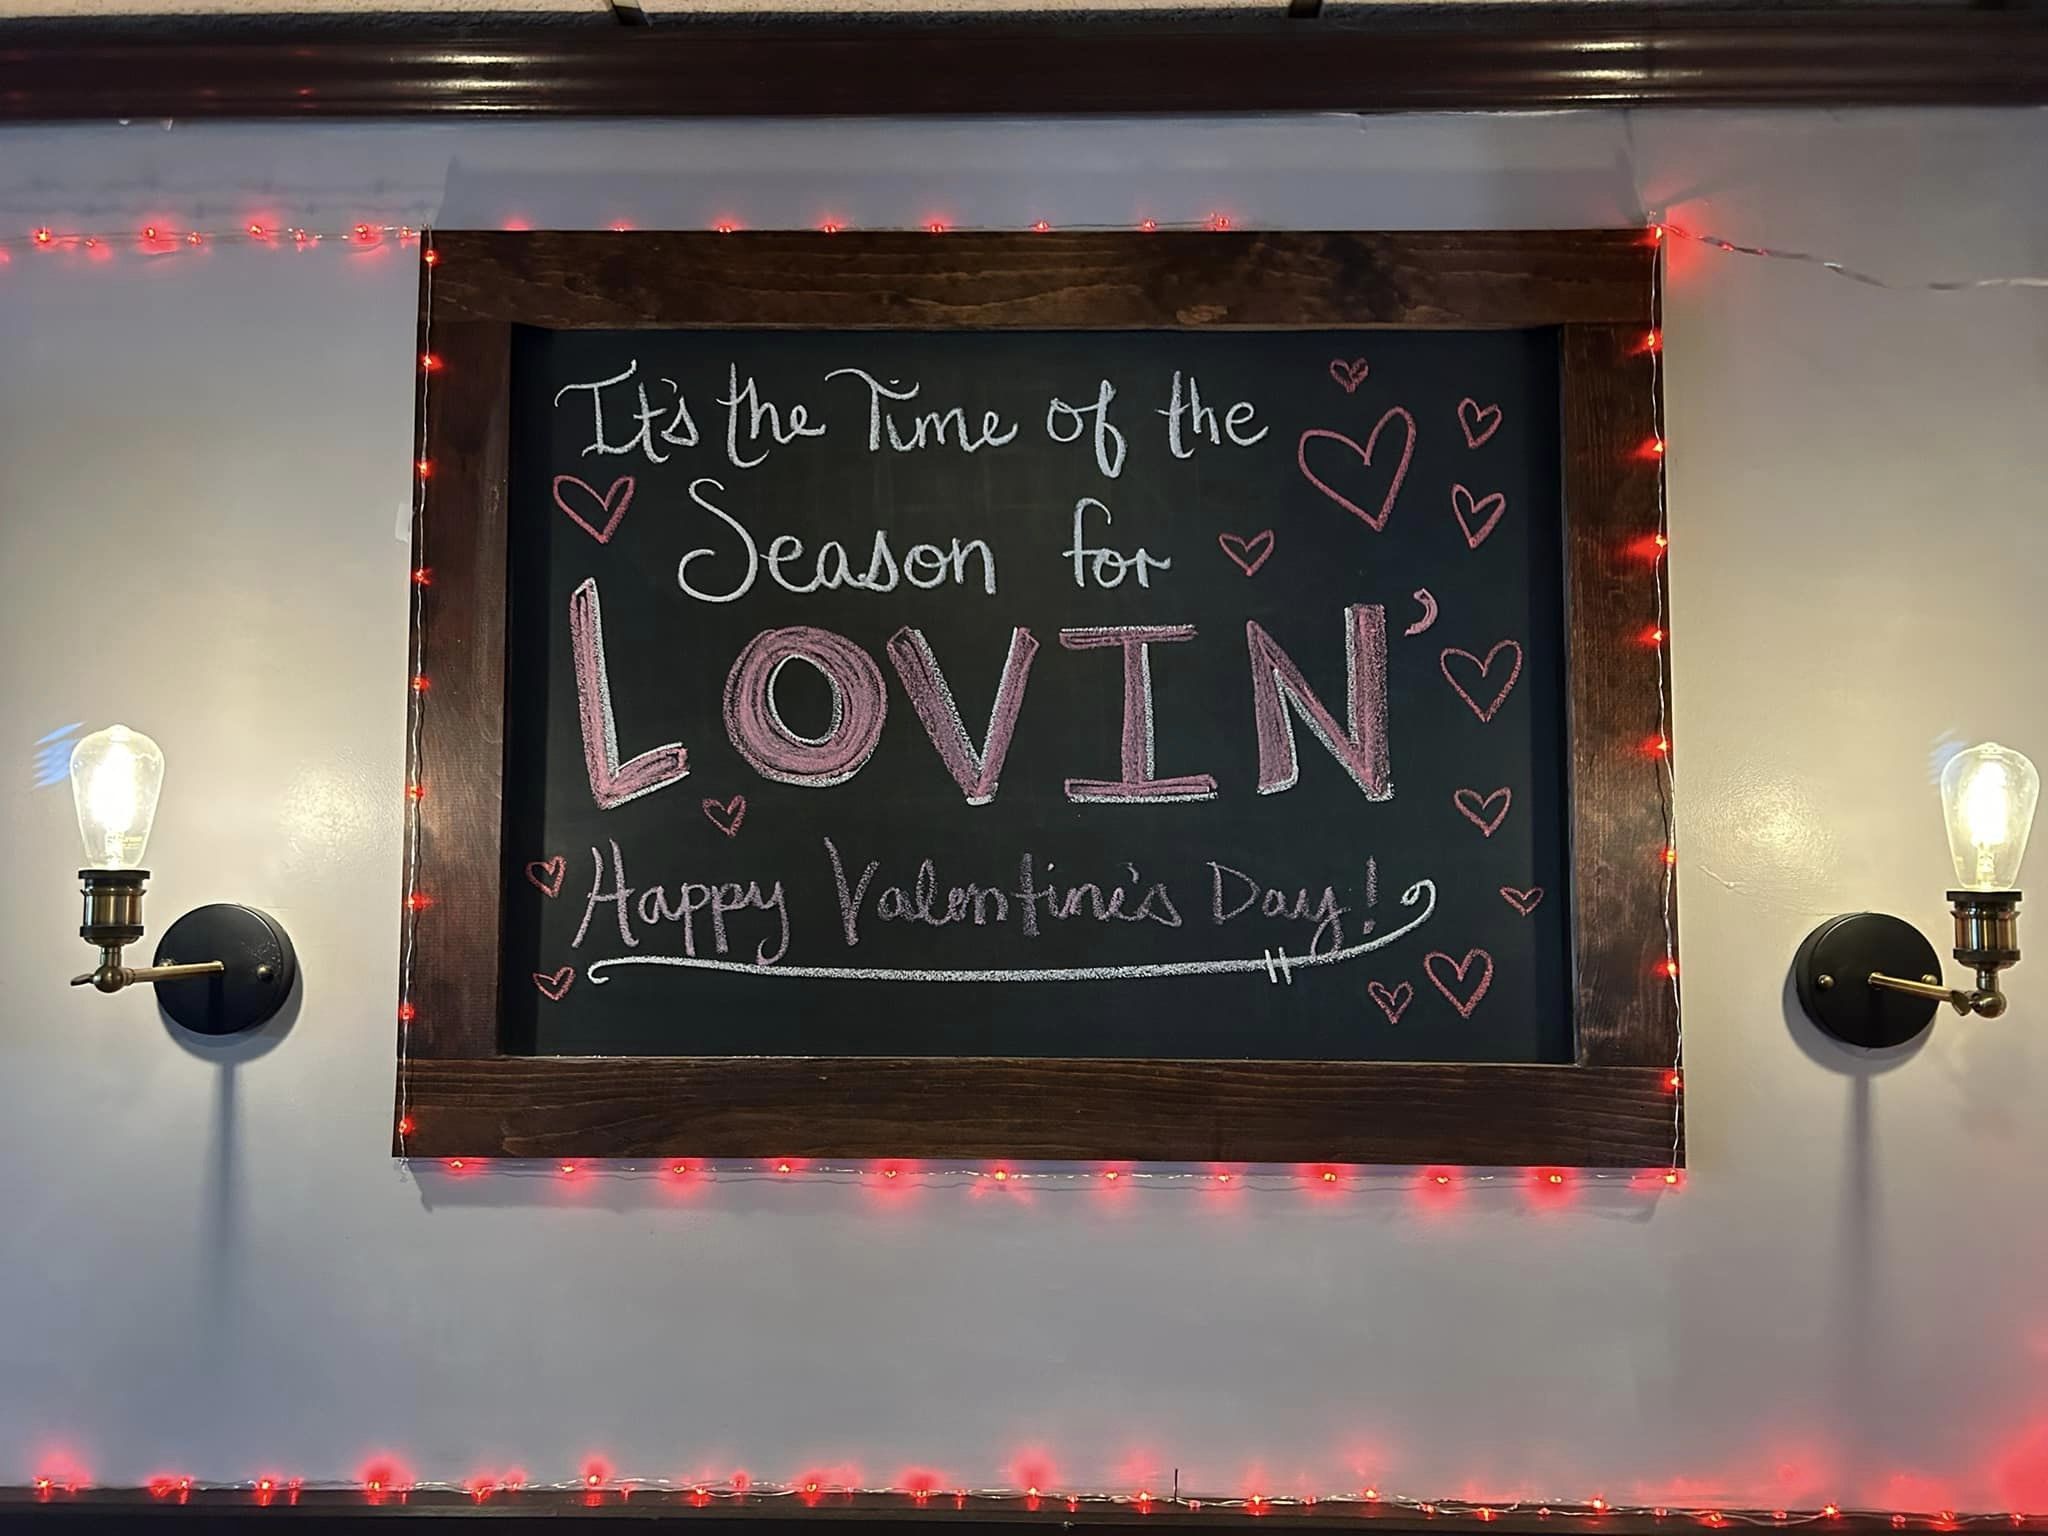 It's the Time of the
Season for
LOVIN'
Happy Valentine's Day!